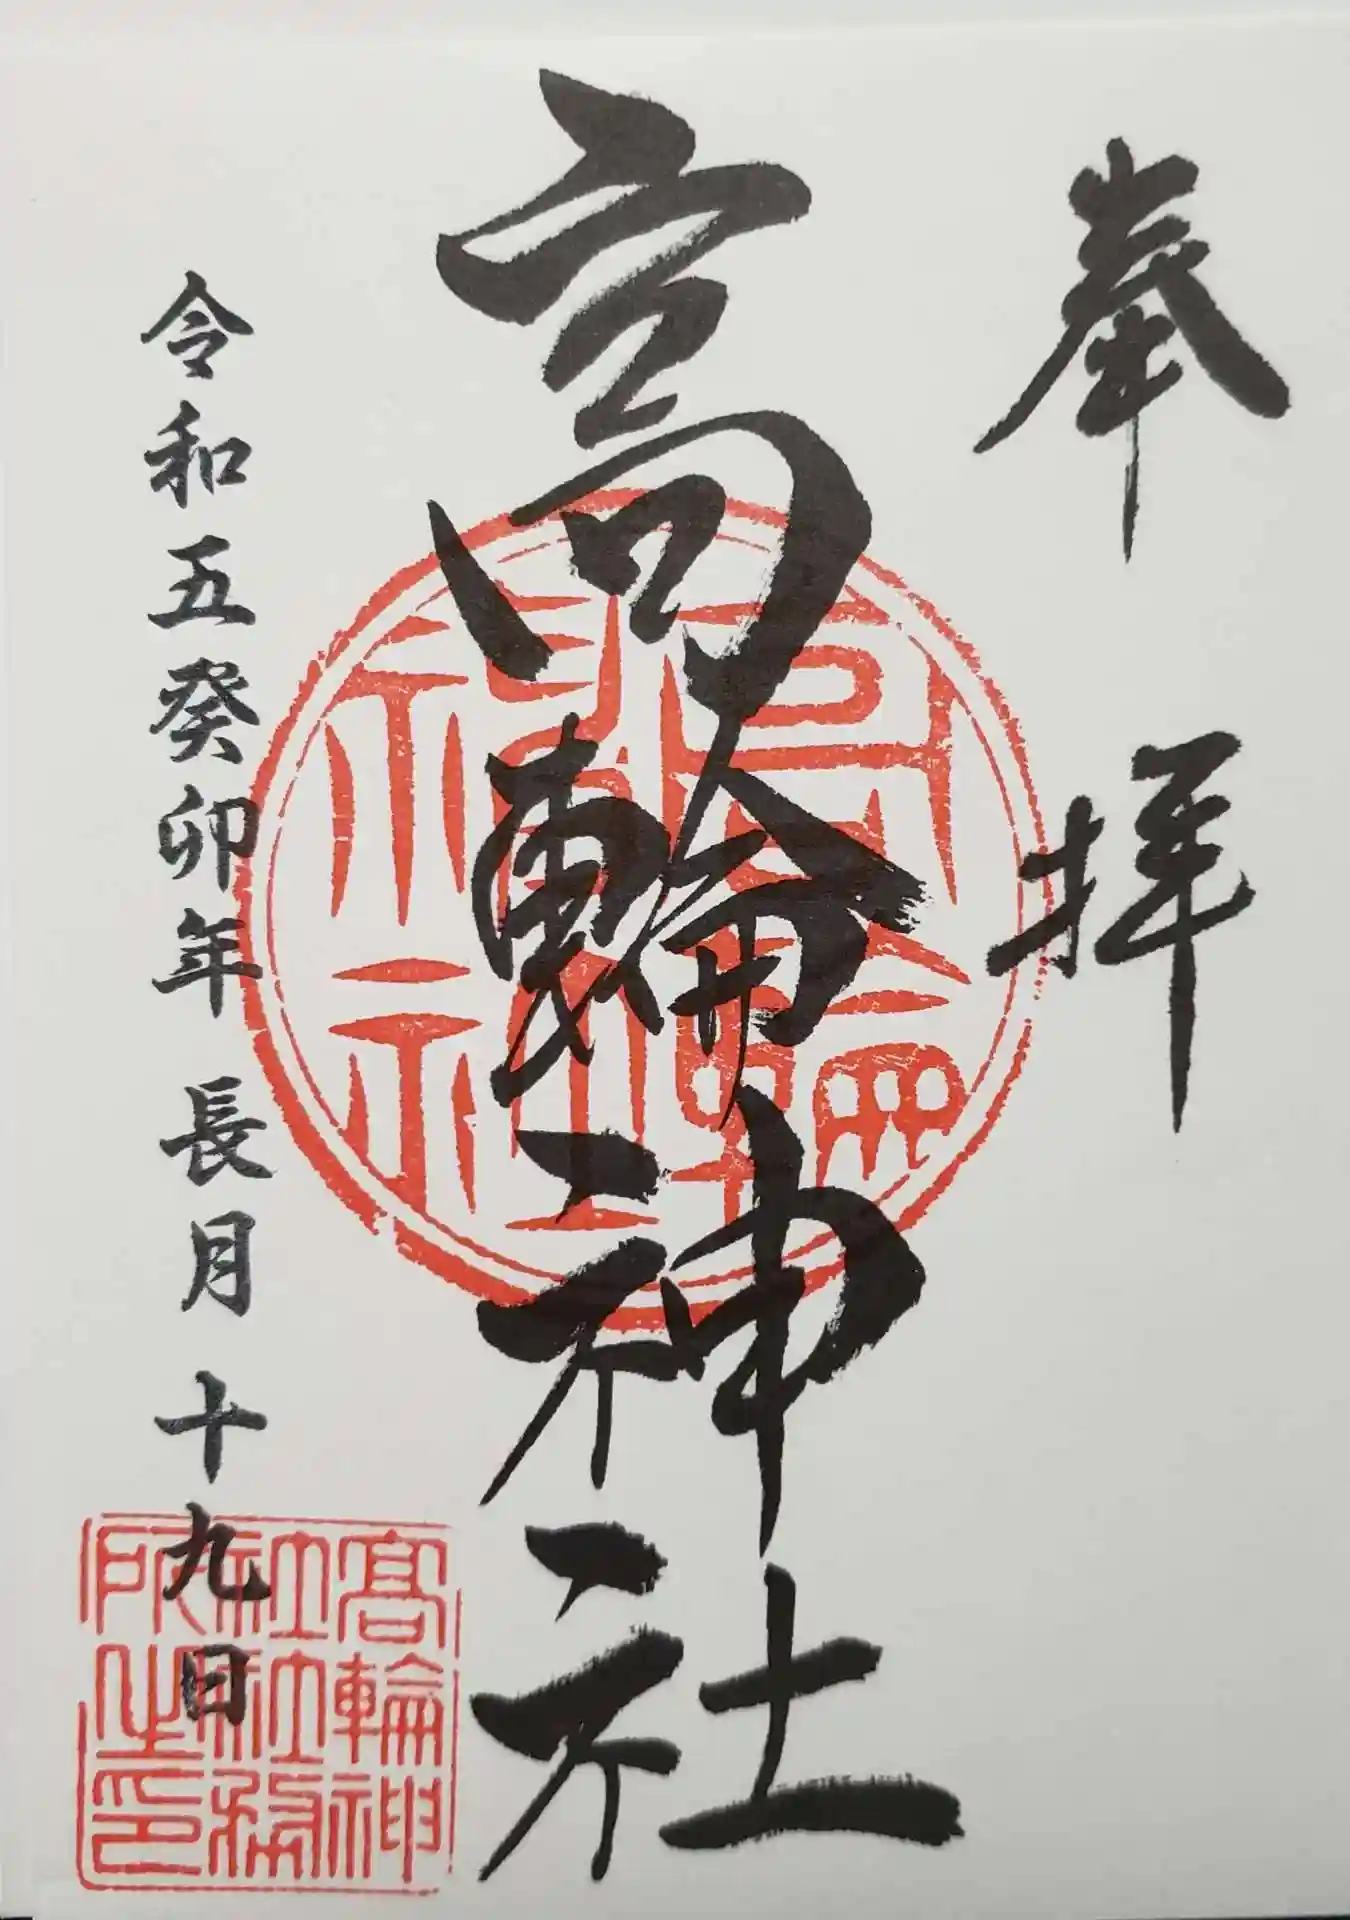 奉拝
高輪神社
令和五癸卯年 長月 十九日
高輪神
社社務
所之印